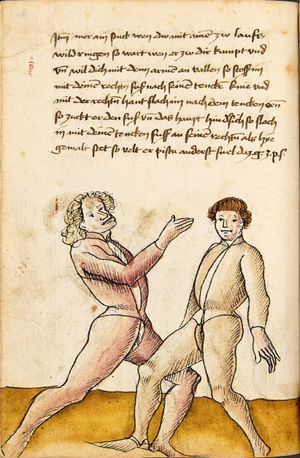 Itm mer ain stuck wen dw mit ainē zw laufs
wild ringen so wart wen er zw dir kumpt vnd
vn̄ wil dich mit dem armen an vallen so stoss in
mit deinē rechtn fuß nach seinē tencke knie vnd
mit der rechtn hant slach in nach dem tencken orn
so zuckt er den fuß vn̄ das haupt hindsich so slach
in mit deinē tencken fuss an seinē rechtn als hye
gemalt stet so velt er pistu anderst snel